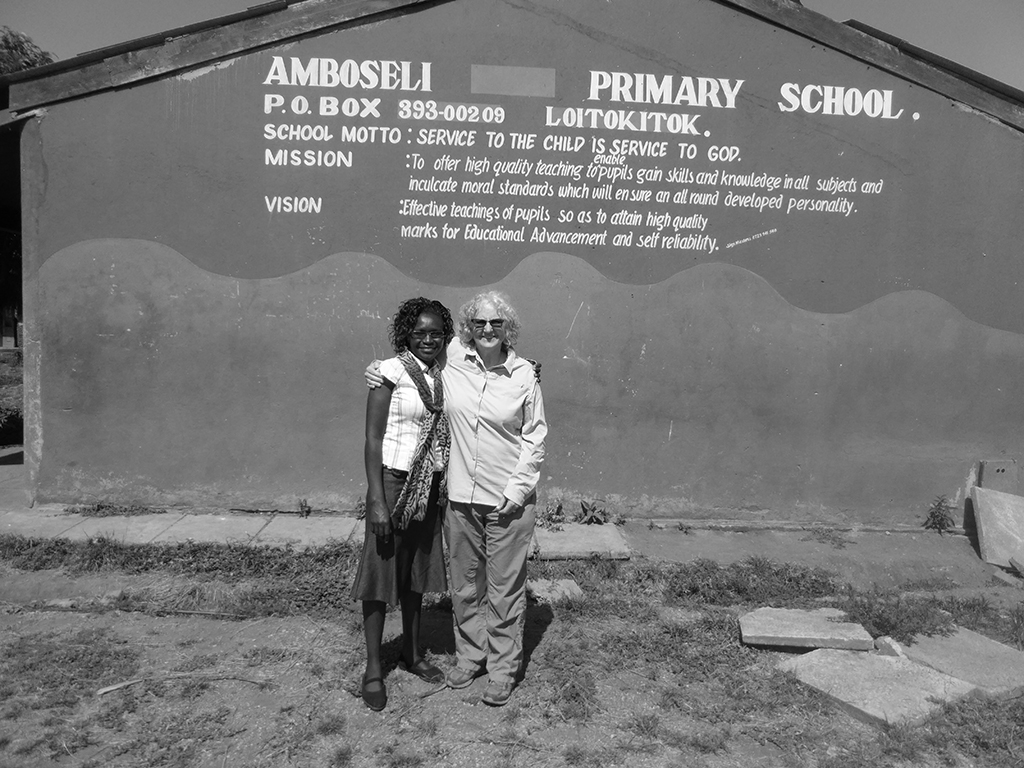 AMBOSELI PRIMARY SCHOOL.
P.O. BOX 393-00209 LOITOKITOK.
SCHOOL MOTTO : SERVICE TO THE CHILD IS SERVICE TO GOD.
MISSION :To offer high quality teaching to enable pupils gain skills and knowledge in all subjects and
inculcate moral standards which will ensure an all round developed personality.
VISION :Effective teachings of pupils so as to attain high quality
marks for Educational Advancement and self reliability.